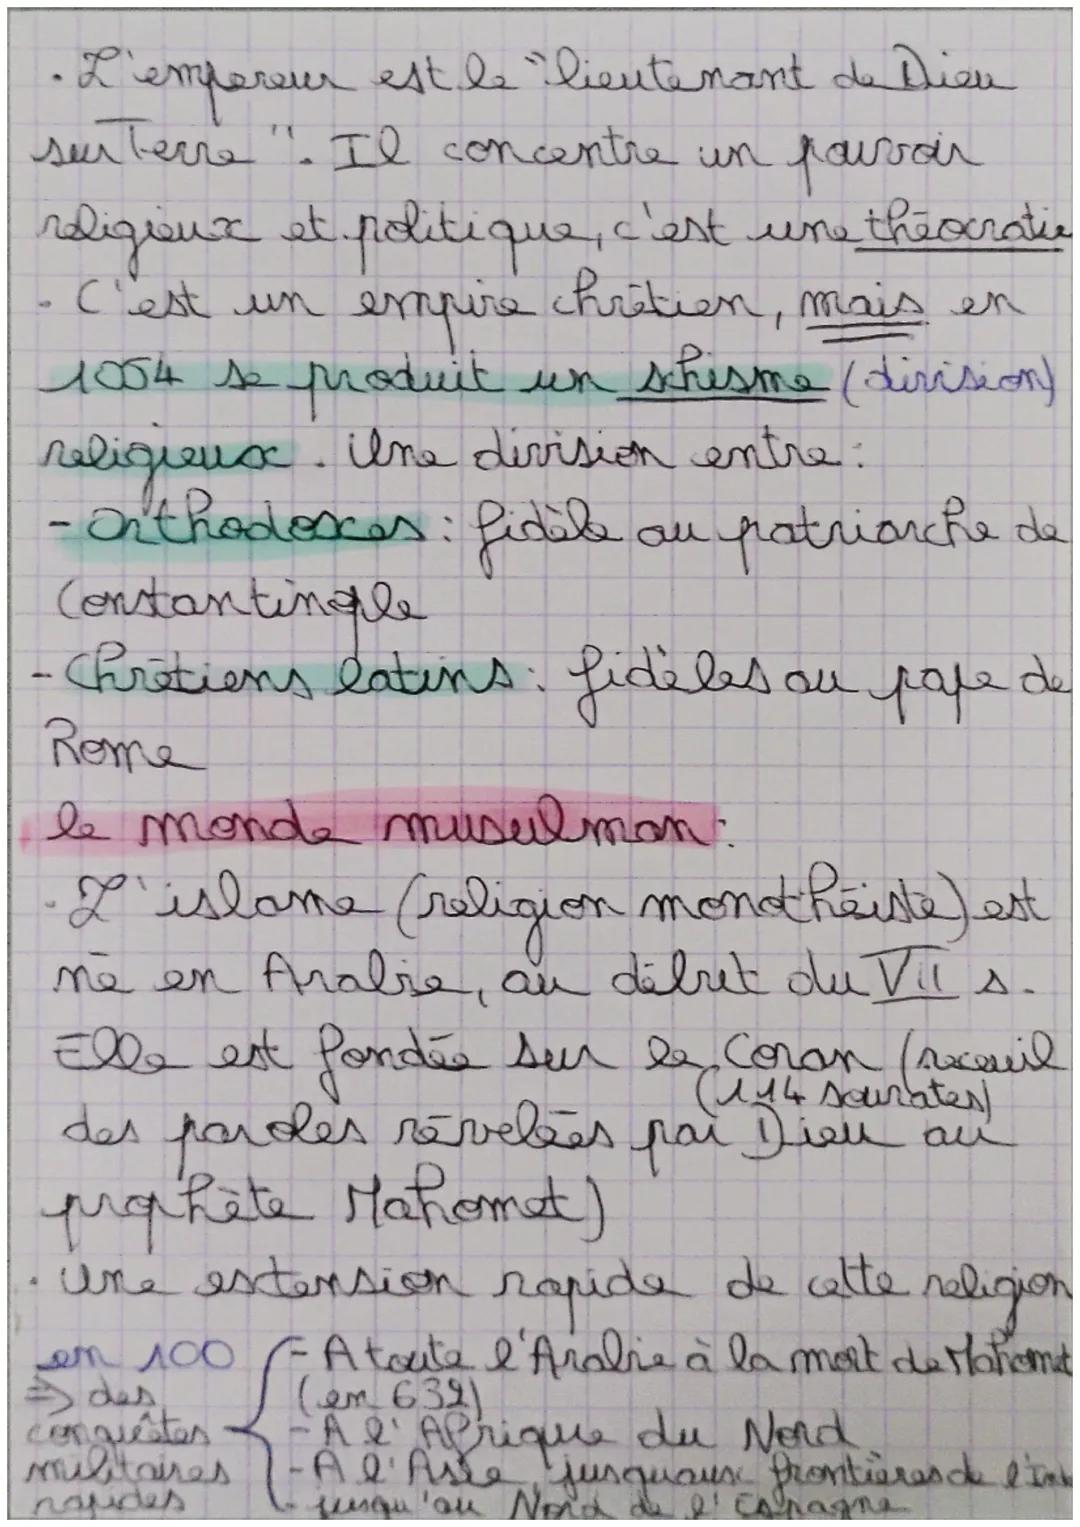 . L'empereur est le "lieutenant de Dieu
sur Terre". Il concentre un pouvoir
religieux et politique, c'est une théocratie
. C'est un empire chrétien, mais en
1054 se produit un schisme (division)
religieux. Une division entre :
- Orthodoxes : fidèle au patriarche de
Constantinople
- Chrétiens latins : fidèles au pape de
Rome
. le monde musulman :
. L'islame (religion monothéiste) est
né en Arabie, au début du VII s.
Elle est fondée sur le Coran (receuil
(114 sourates)
des paroles révelées par Dieu au
prophète Mahomet)
. Une extension rapide de cette religion
en 100 - A toute l'Arabie à la mort de Mahomet
=> des (en 632)
conquêtes - A l'Afrique du Nord
militaires - A l'Asie, jusquaux frontières de l'Ind
rapides - jusqu'au Nord de l'Espagne